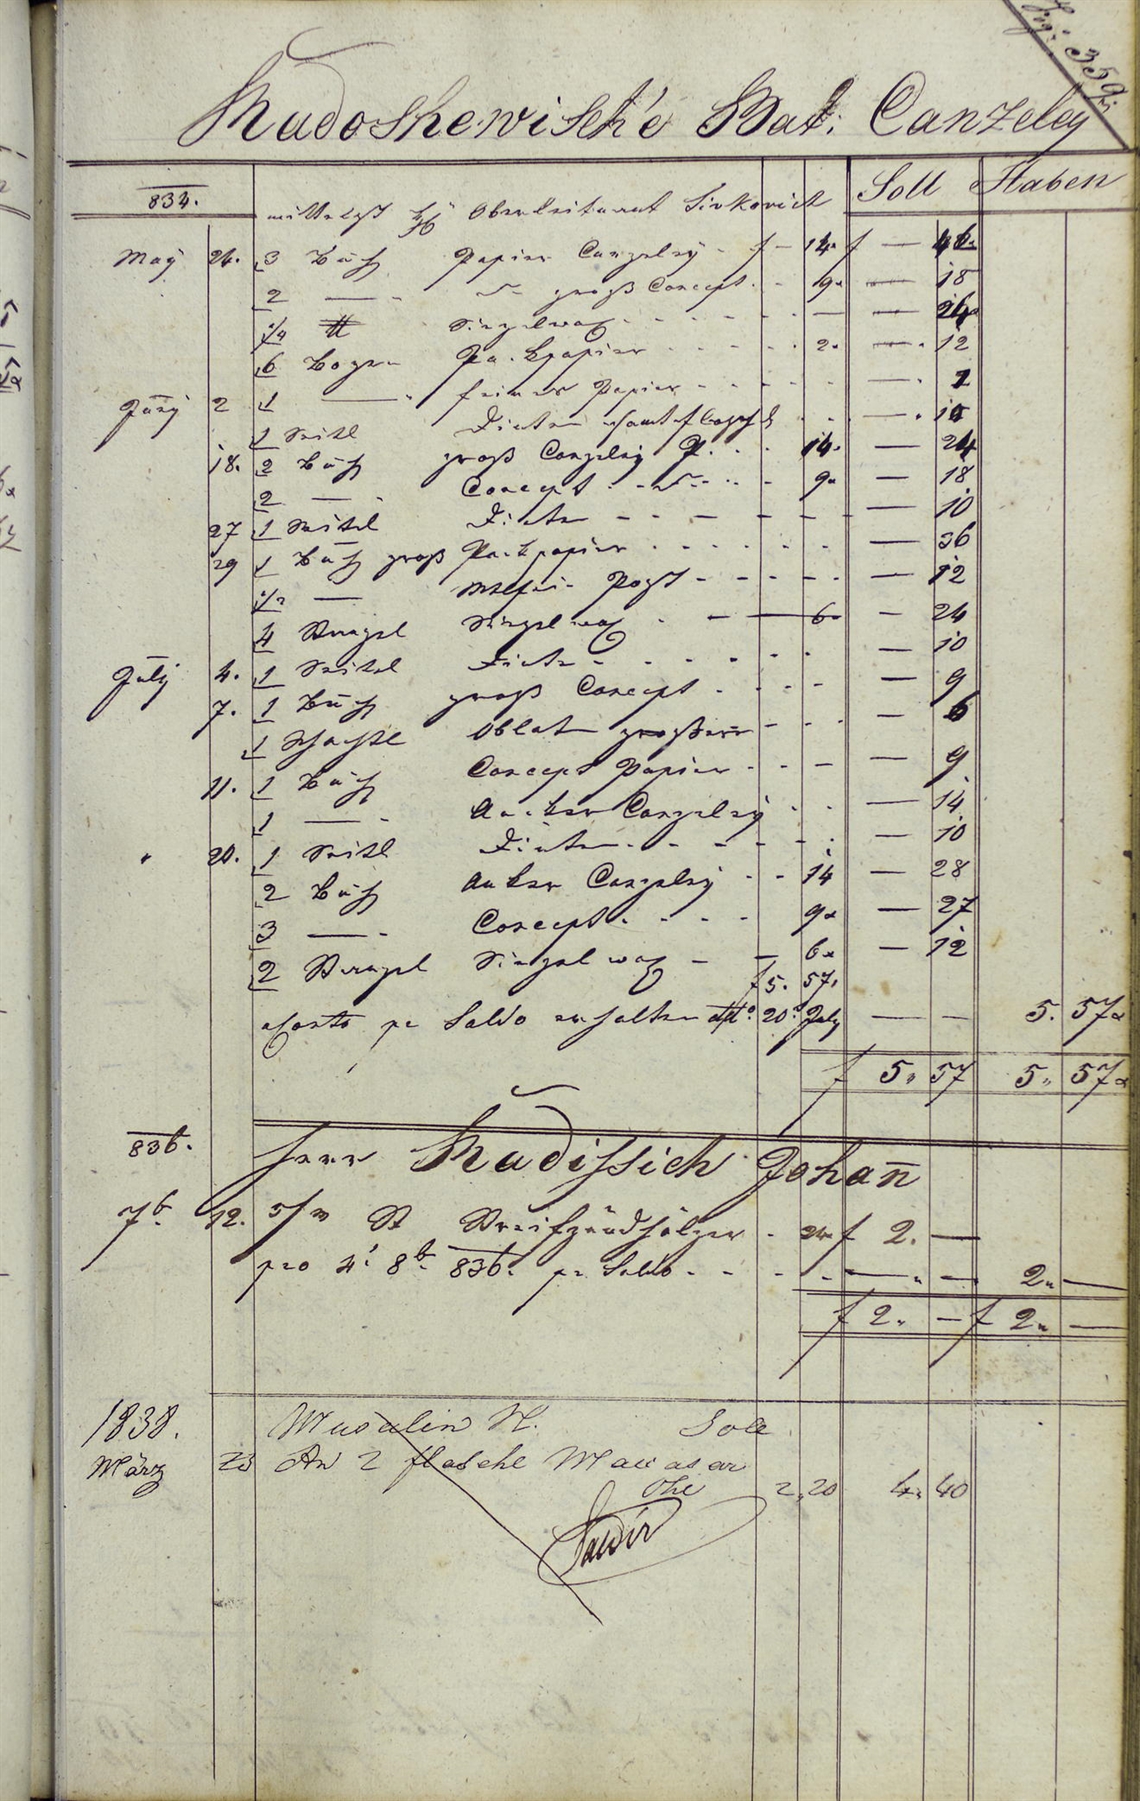 359
Kudoshewitsché Bat: Canzeley
Soll Haben
834. mittelst H Oberleitenant Sivkovich
May 24. 3 Buch Papier Canzeley - f - 14 f - 42
2 — groß Concept - 9 — 18
1/4 ℔ Siegelwax — — 24
6 Bogen Packpapier 2 — 12
Juny 2 1 — feines Papier — 1
1 Seitl Dinten samt — 10
18. 2 Buch groß Canzeley P. 14 — 24
2 — Concept 9 — 18
27 1 Seitel Dinten — 10
29 1 Buch groß Packpapier — 36
1/2 — Post — 12
4 Stengel Siegelwax 6 — 24
July 4. 1 Seitel Dinten — 10
7. 1 Buch groß Concept — 9
1 Schachtel Oblaten — 6
11. 1 Buch Concept Papier — 9
1 — Anker Canzeley — 14
" 20. 1 Seitl Dinten — 10
2 Buch Anker Canzeley 14 — 28
3 — Concept 9 — 27
2 Stengel Siegel wax 6 — 12
f 5. 57
pr Saldo erhalten 20 July — — 5. 57
f 5. 57 5. 57
836. Herr Kudissich Johan̄
7b 12. 5/m St Streifzündhölzer 24 f 2. —
pro 4 8b 836. pr Saldo — — 2. —
f 2. — f 2. —
1838. Musulin N. Soll
März 23 An 2 flasche Macasar
Öhl 2.20 4. 40
Saldir